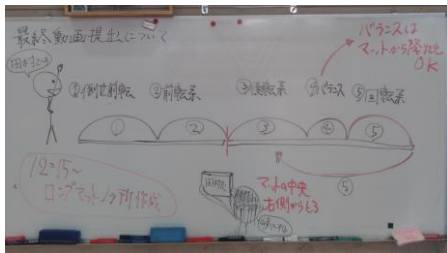 最終動画提出について
バランスは
マットから降りても
OK
①倒立前転
②前転系
③後転系
④バランス
⑤回転系
① ② ③ ④ ⑤
⑤
12:15～
ロングマット1ヶ所作成
マットの中央
右側からとる